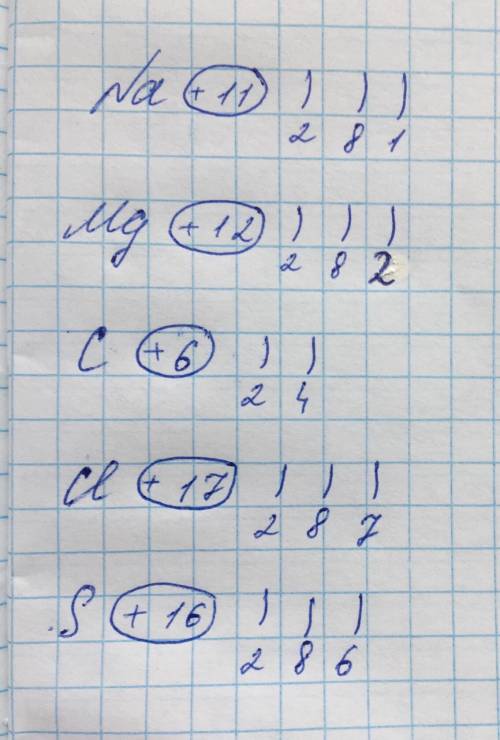 Na +11 ) ) )
2 8 1
Mg +12 ) ) )
2 8 2
C +6 ) )
2 4
Cl +17 ) ) )
2 8 7
S +16 ) ) )
2 8 6